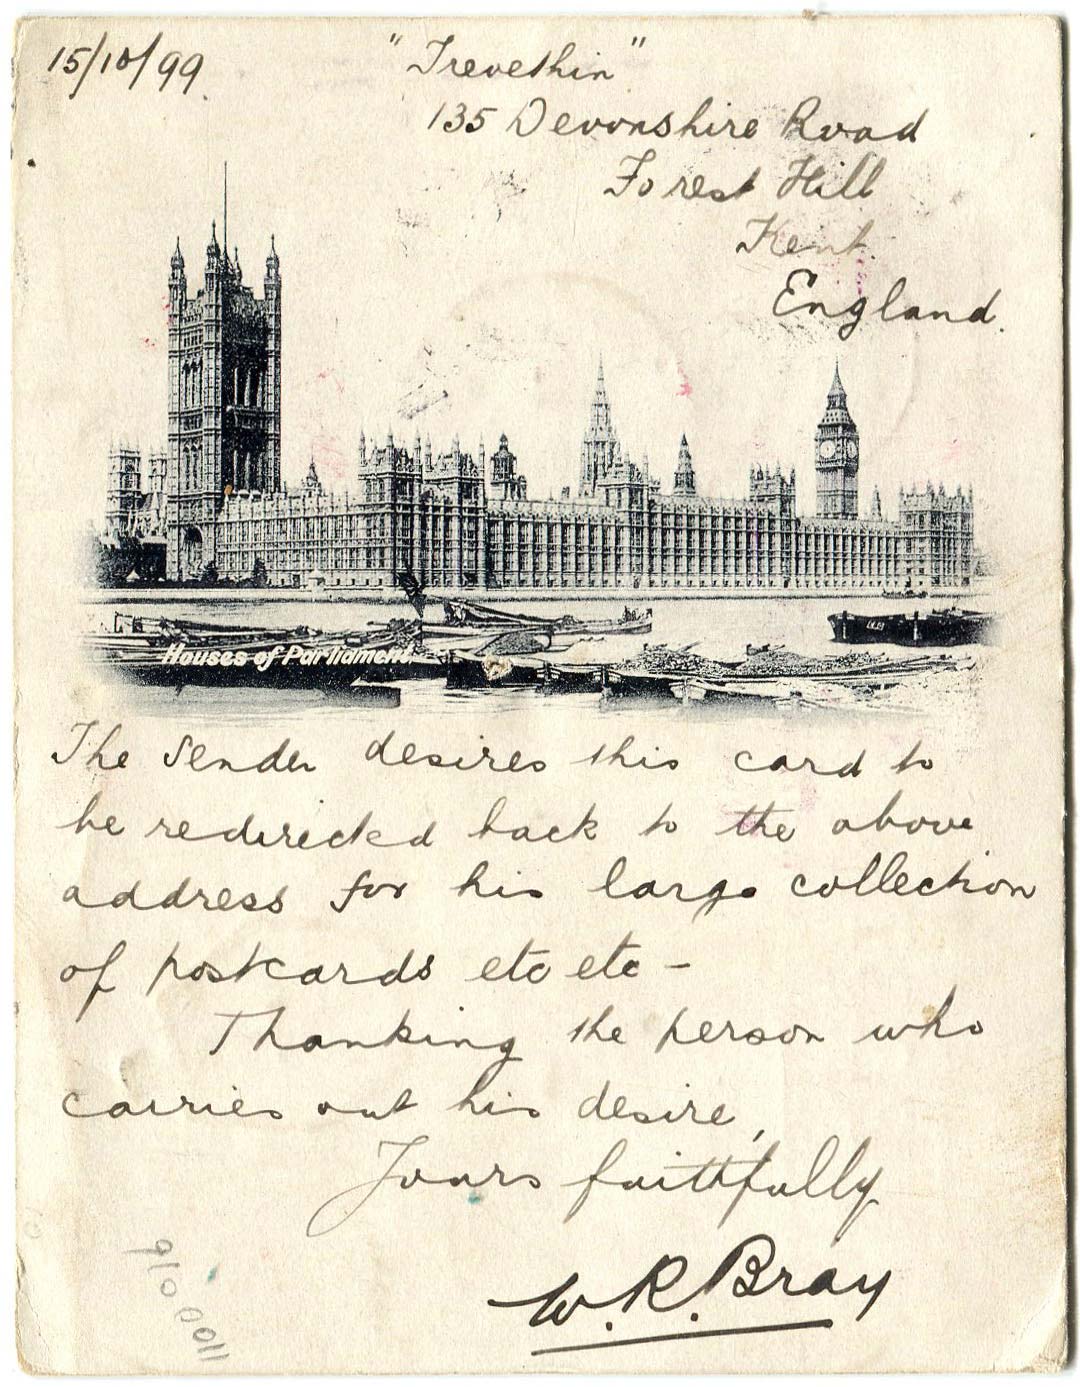 15/10/99.
"Trevethin"
135 Devonshire Road
Forest Hill
Kent.
England.
Houses of Parliament.
The Sender desires this card to
be redirected back to the above
address for his large collection
of postcards etc etc -
Thanking the person who
carries out his desire,
Yours faithfully
W. R. Bray